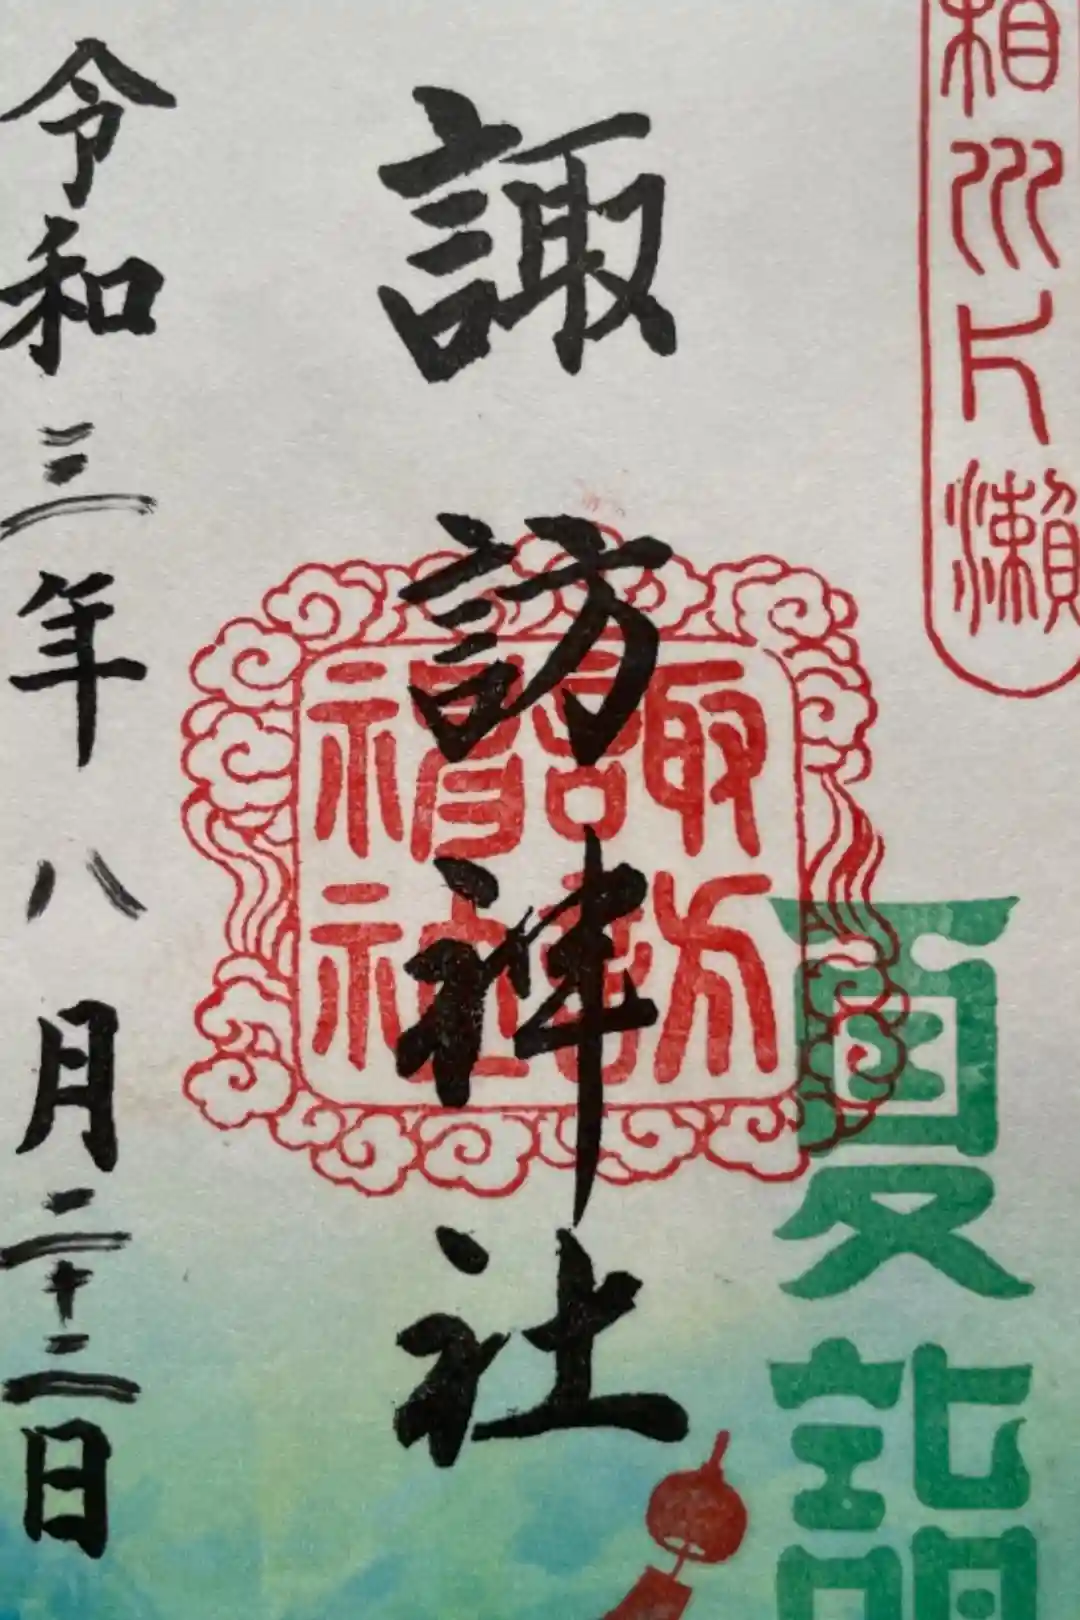 相州片瀨
夏詣
諏訪神社
諏訪
神社
令和三年八月二十二日